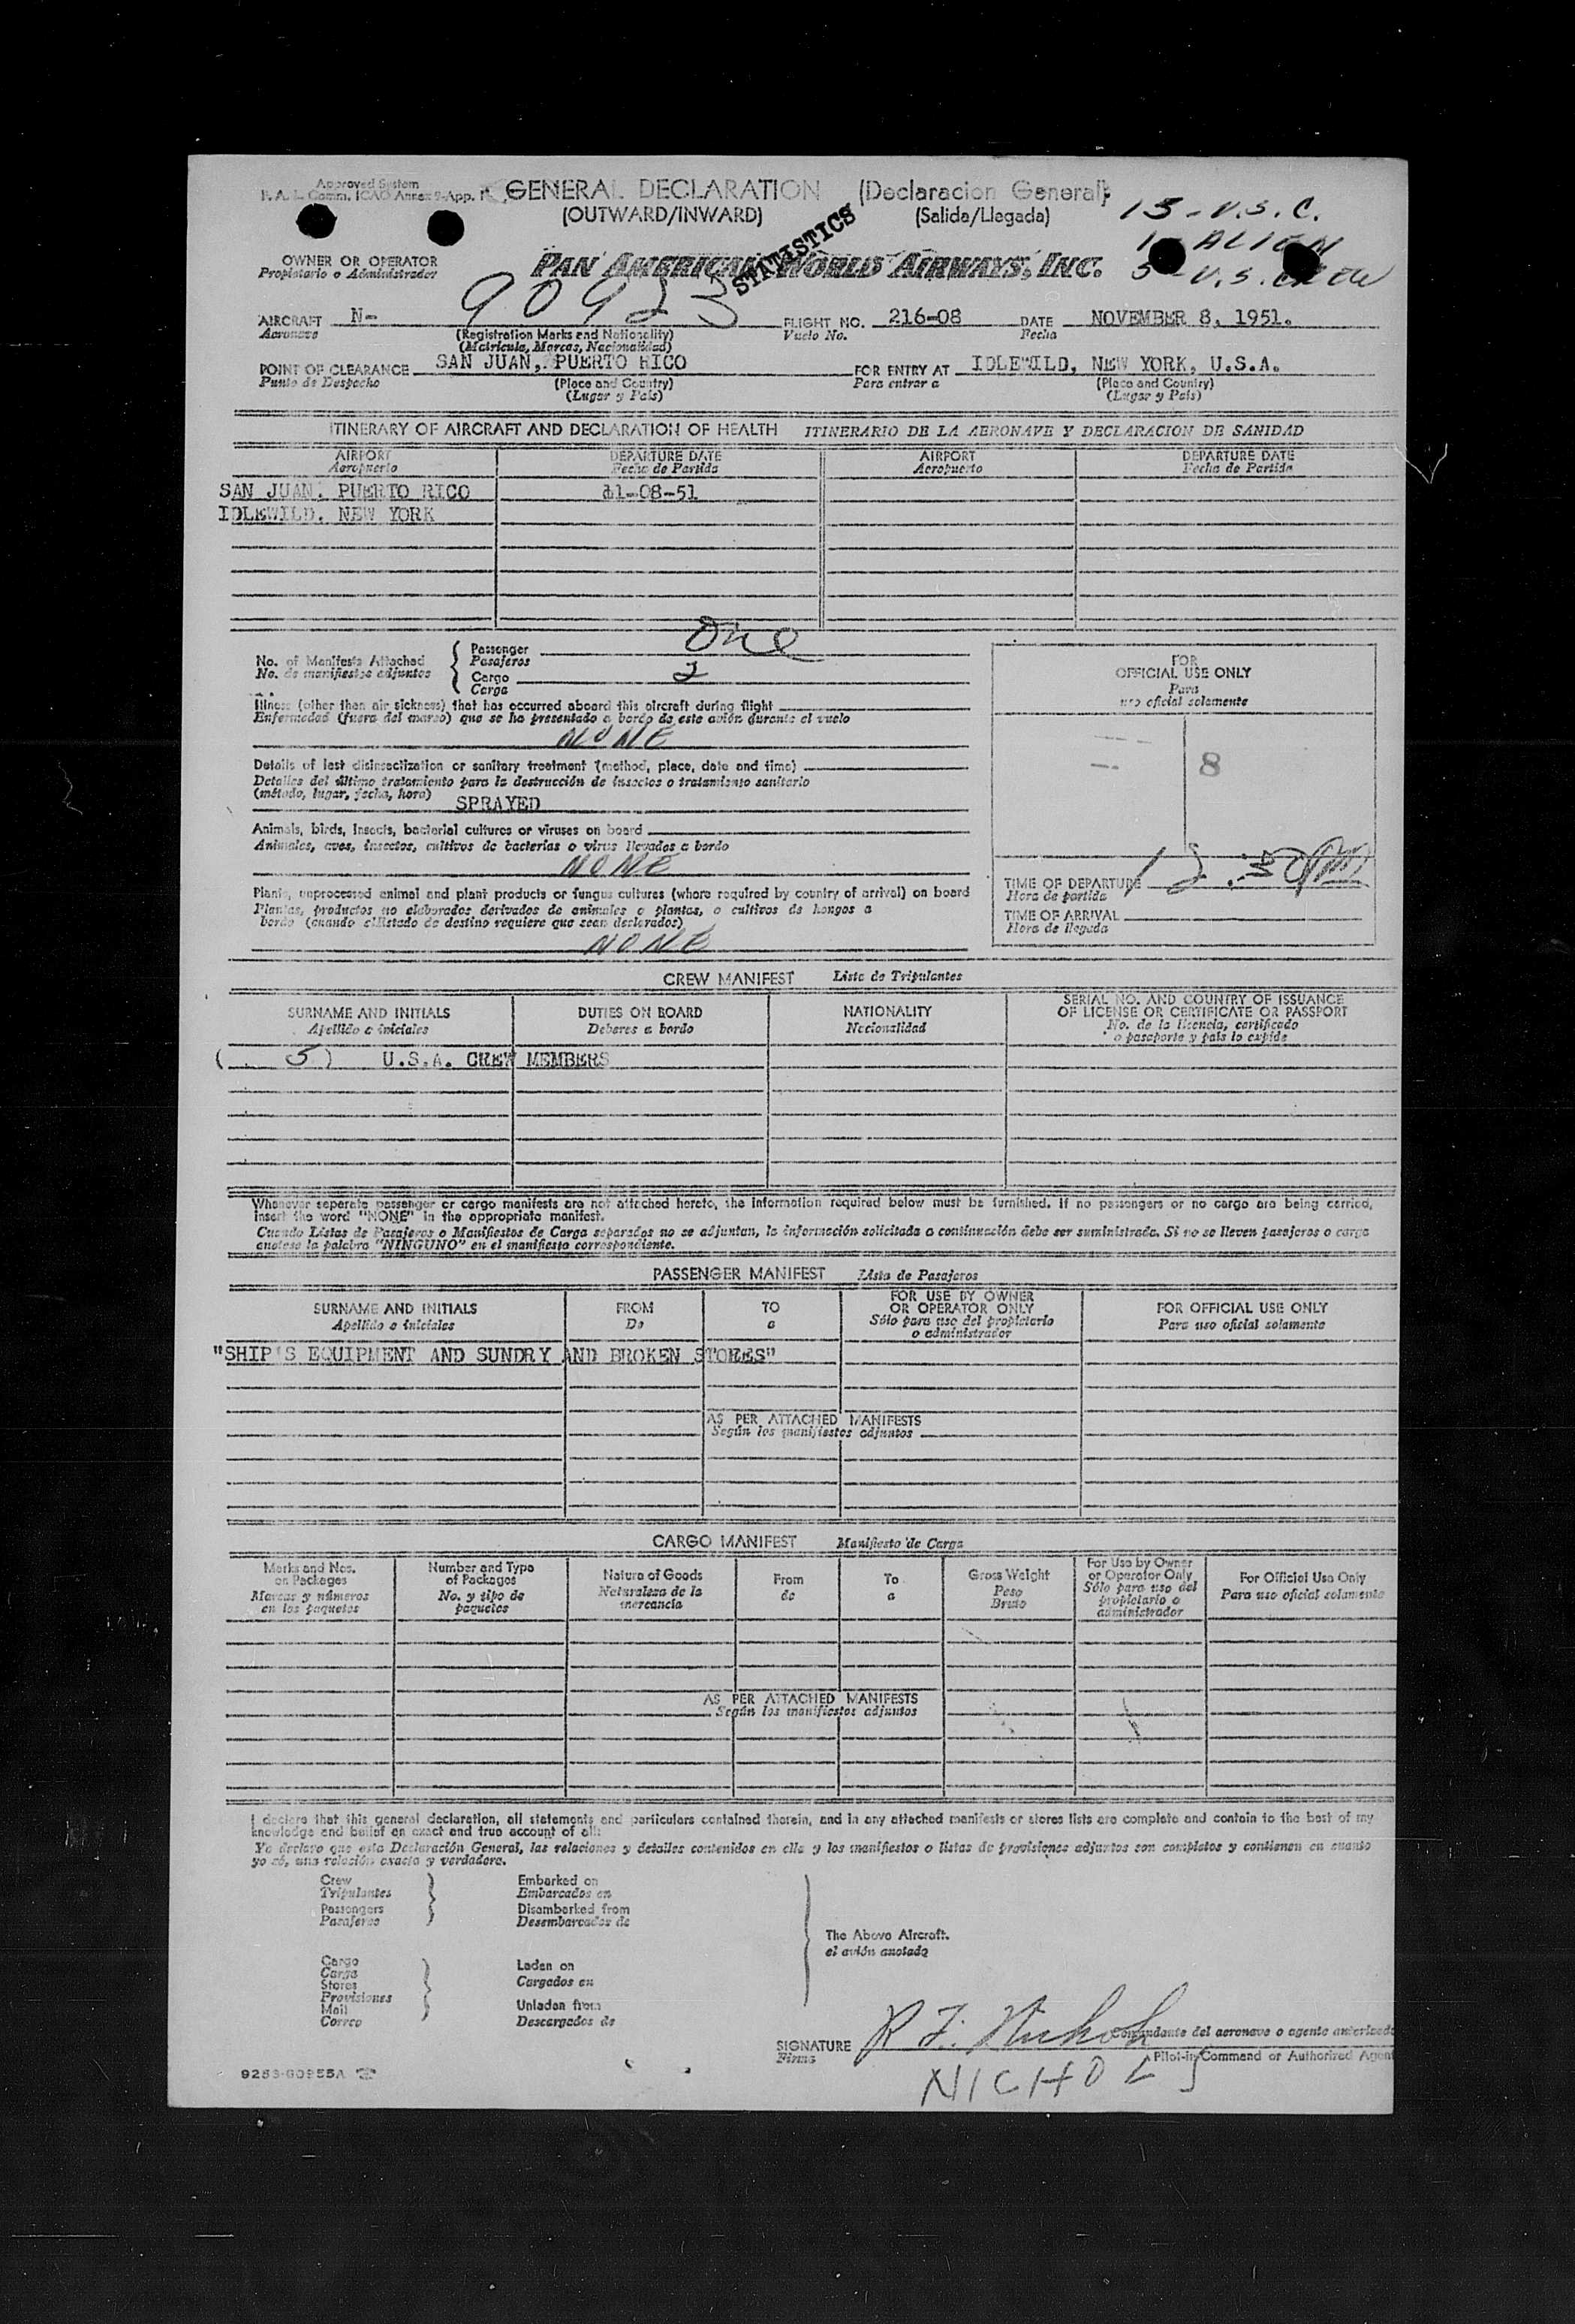 Approved System
F. A. L. Comm. ICAO Annex 9-App. 1
GENERAL DECLARATION (Declaracion General)
(OUTWARD/INWARD) (Salida/Llegada)
15 - U.S.C.
1 - ALIEN
5 - U.S. CREW
STATISTICS
OWNER OR OPERATOR
Propietario o Administrador
PAN AMERICAN WORLD AIRWAYS, INC.
AIRCRAFT N- 90923 FLIGHT NO. 216-08 DATE NOVEMBER 8, 1951.
Aeronave (Registration Marks and Nationality) Vuelo No. Fecha
(Matricula, Marcas, Nacionalidad)
POINT OF CLEARANCE SAN JUAN, PUERTO RICO FOR ENTRY AT IDLEWILD, NEW YORK, U.S.A.
Punto de Despacho (Place and Country) Para entrar a (Place and Country)
(Lugar y Pais) (Lugar y Pais)
ITINERARY OF AIRCRAFT AND DECLARATION OF HEALTH ITINERARIO DE LA AERONAVE Y DECLARACION DE SANIDAD
AIRPORT DEPARTURE DATE AIRPORT DEPARTURE DATE
Aeropuerto Fecha de Partida Aeropuerto Fecha de Partida
SAN JUAN. PUERTO RICO 11-08-51
IDLEWILD. NEW YORK
No. of Manifests Attached
No. de manifiestos adjuntos
Passenger One
Pasajeros
Cargo 2
Carga
Illness (other than air sickness) that has occurred aboard this aircraft during flight
Enfermedad (fuera del mareo) que se ha presentado a bordo de este avión durante el vuelo
NONE
Details of last disinsectization or sanitary treatment (method, place, date and time)
Detalles del último tratamiento para la destrucción de insectos o tratamiento sanitario
(método, lugar, fecha, hora)
SPRAYED
Animals, birds, insects, bacterial cultures or viruses on board
Animales, aves, insectos, cultivos de bacterias o virus llevados a bordo
NONE
Plants, unprocessed animal and plant products or fungus cultures (where required by country of arrival) on board
Plantas, productos no elaborados derivados de animales o plantas, o cultivos de hongos a
bordo (cuando el Estado de destino requiere que sean declarados)
NONE
FOR
OFFICIAL USE ONLY
Para
uso oficial solamente
8
TIME OF DEPARTURE 12:50PM
Hora de partida
TIME OF ARRIVAL
Hora de llegada
CREW MANIFEST Lista de Tripulantes
SURNAME AND INITIALS DUTIES ON BOARD NATIONALITY SERIAL NO. AND COUNTRY OF ISSUANCE
OF LICENSE OR CERTIFICATE OR PASSPORT
Apellido e iniciales Deberes a bordo Nacionalidad No. de la licencia, certificado
o pasaporte y país lo expide
( 5 ) U.S.A. CREW MEMBERS
Whenever seperate passenger or cargo manifests are not attached hereto, the information required below must be furnished. If no passengers or no cargo are being carried,
insert the word "NONE" in the appropriate manifest.
Cuando Listas de Pasajeros o Manifiestos de Carga separados no se adjuntan, la información solicitada a continuación debe ser suministrada. Si no se lleven pasajeros o carga
anotese la palabra "NINGUNO" en el manifiesto correspondiente.
PASSENGER MANIFEST Lista de Pasajeros
SURNAME AND INITIALS FROM TO FOR USE BY OWNER
OR OPERATOR ONLY FOR OFFICIAL USE ONLY
Apellido e iniciales De a Sólo para uso del propietario
o administrador Para uso oficial solamente
"SHIP'S EQUIPMENT AND SUNDRY AND BROKEN STORES"
AS PER ATTACHED MANIFESTS
Según los manifiestos adjuntos
CARGO MANIFEST Manifiesto de Carga
Marks and Nos.
on Packages
Marcas y números
en los paquetes
Number and Type
of Packages
No. y tipo de
paquetes
Nature of Goods
Naturaleza de la
mercancia
From
de
To
a
Gross Weight
Peso
Bruto
For Use by Owner
or Operator Only
Sólo para uso del
propietario o
administrador
For Official Use Only
Para uso oficial solamente
AS PER ATTACHED MANIFESTS
Según los manifiestos adjuntos
I declare that this general declaration, all statements and particulars contained therein, and in any attached manifests or stores lists are complete and contain to the best of my
knowledge and belief an exact and true account of all:
Yo declaro que esta Declaración General, las relaciones y detalles contenidos en ella y los manifiestos o listas de provisiones adjuntos son completos y contienen en cuanto
yo sé, una relación exacta y verdadera.
Crew
Tripulantes
Passengers
Pasajeros
Embarked on
Embarcados en
Disembarked from
Desembarcados de
The Above Aircraft.
el avión anotado
Cargo
Carga
Stores
Provisiones
Mail
Correo
Laden on
Cargados en
Unladen from
Descargados de
SIGNATURE R F. Nichols
Firma
Comandante del aeronave o agente autorizado
Pilot-in-Command or Authorized Agent
NICHOLS